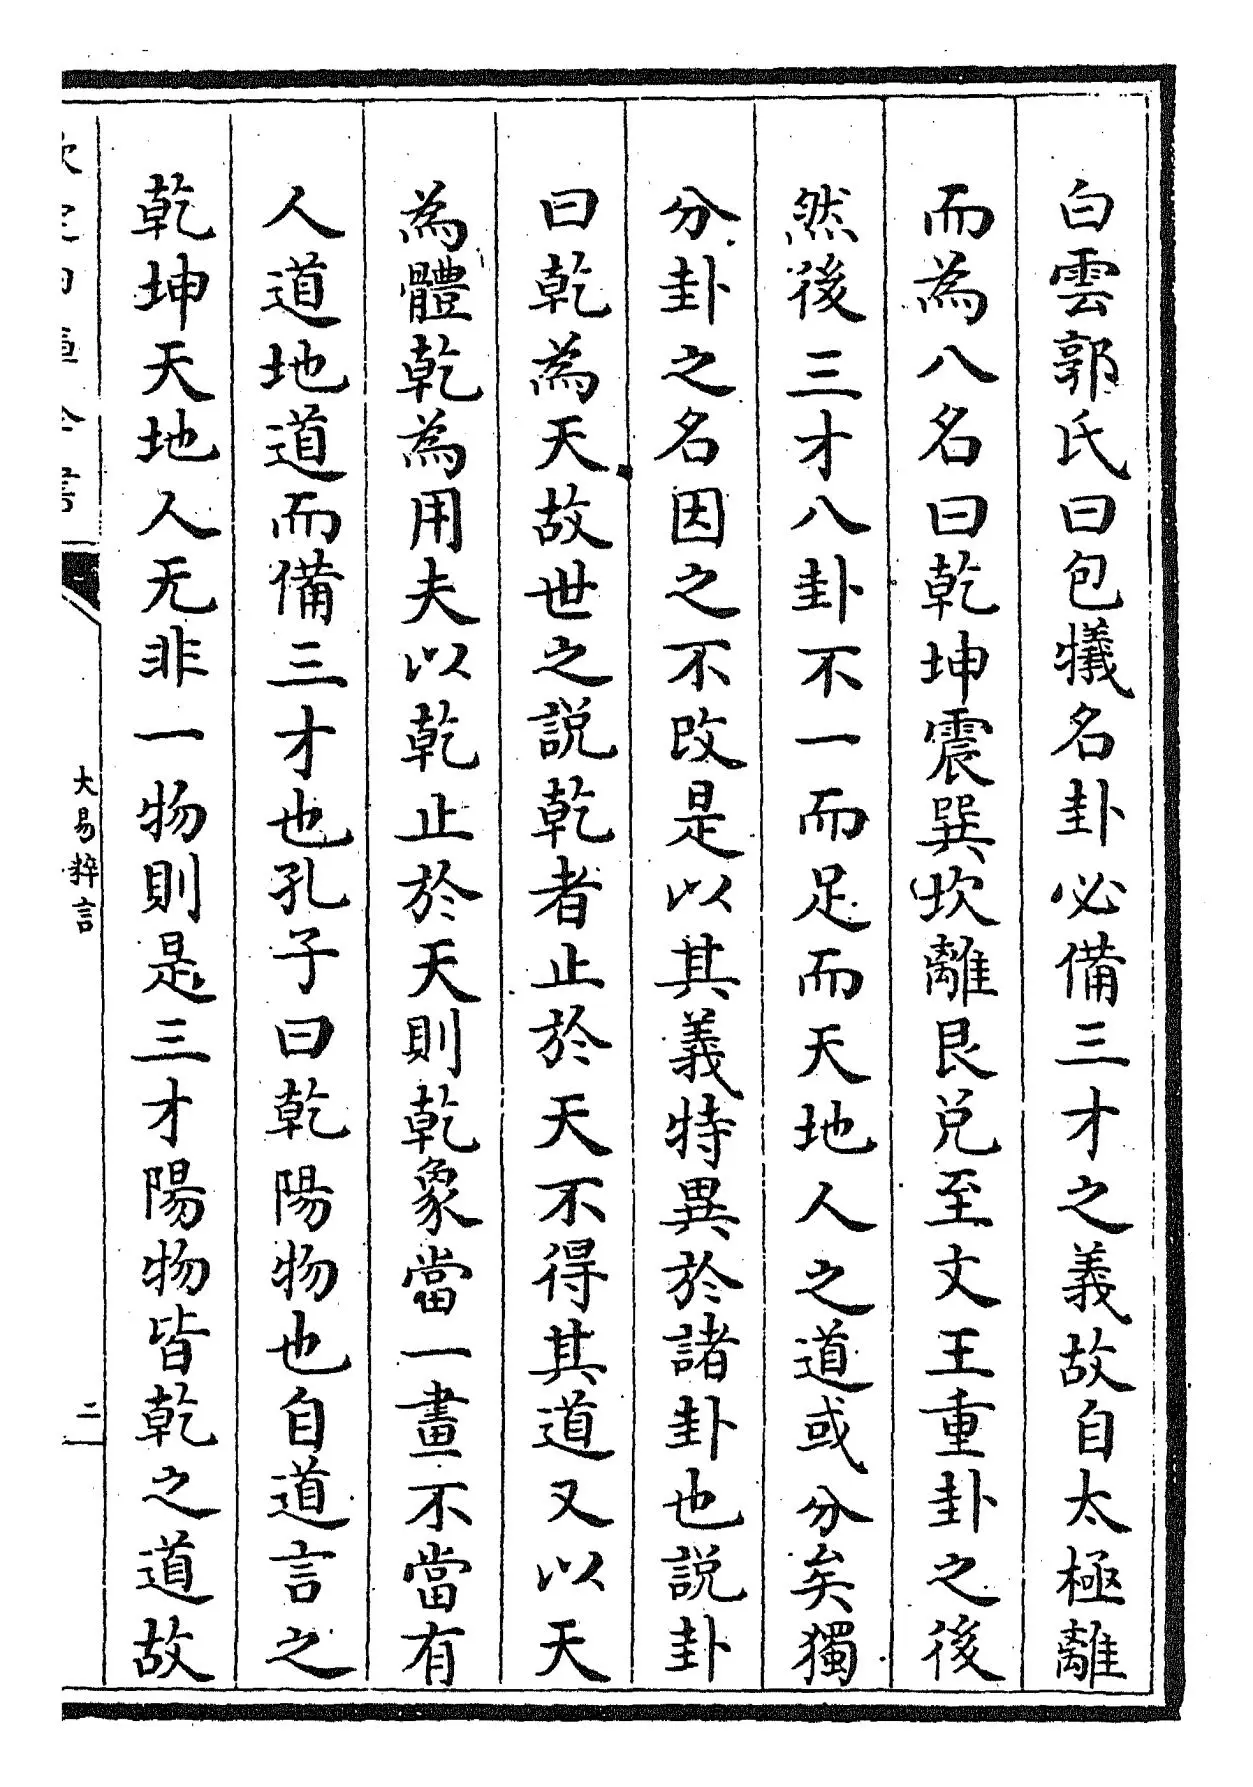 白雲郭氏曰包犧名卦必備三才之義故自太極離
而為八名曰乾坤震巽坎離艮兌至文王重卦之後
然後三才八卦不一而足而天地人之道或分矣獨
分卦之名因之不改是以其義特異於諸卦也說卦
曰乾為天故世之說乾者止於天不得其道又以天
為體乾為用夫以乾止於天則乾象當一畫不當有
人道地道而備三才也孔子曰乾陽物也自道言之
乾坤天地人无非一物則是三才陽物皆乾之道故
大易粹言
二